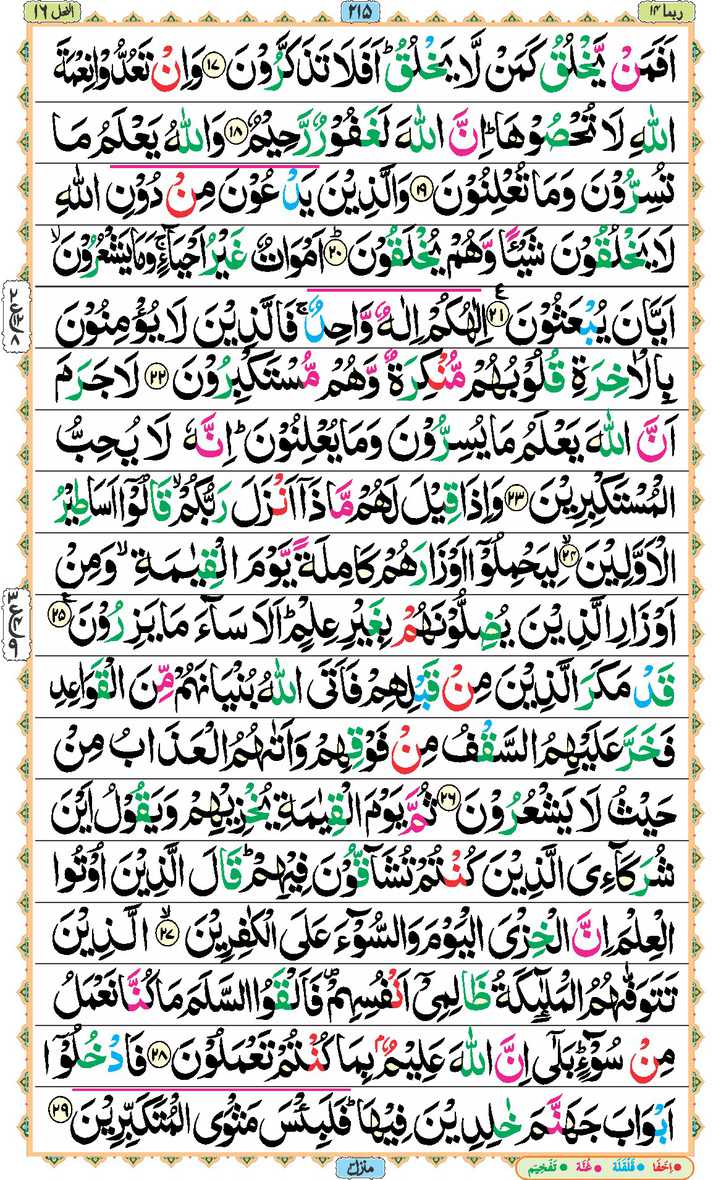 ربما ۱۴
۲۱۵
النحل ۱۶
اَفَمَنْ يَّخْلُقُ كَمَنْ لَّا يَخْلُقُ ؕ اَفَلَا تَذَكَّرُوْنَ ۱۷ وَاِنْ تَعُدُّوْا نِعْمَةَ
اللّٰهِ لَا تُحْصُوْهَا ؕ اِنَّ اللّٰهَ لَغَفُوْرٌ رَّحِيْمٌ ۱۸ وَاللّٰهُ يَعْلَمُ مَا
تُسِرُّوْنَ وَمَا تُعْلِنُوْنَ ۱۹ وَالَّذِيْنَ يَدْعُوْنَ مِنْ دُوْنِ اللّٰهِ
لَا يَخْلُقُوْنَ شَيْـًٔا وَّهُمْ يُخْلَقُوْنَ ؕ ۲۰ اَمْوَاتٌ غَيْرُ اَحْيَآءٍ ۚ وَمَا يَشْعُرُوْنَ ۙ
اَيَّانَ يُبْعَثُوْنَ ۲۱ ع اِلٰهُكُمْ اِلٰهٌ وَّاحِدٌ ۚ فَالَّذِيْنَ لَا يُؤْمِنُوْنَ
بِالْاٰخِرَةِ قُلُوْبُهُمْ مُّنْكِرَةٌ وَّهُمْ مُّسْتَكْبِرُوْنَ ۲۲ لَا جَرَمَ
اَنَّ اللّٰهَ يَعْلَمُ مَا يُسِرُّوْنَ وَمَا يُعْلِنُوْنَ ؕ اِنَّهٗ لَا يُحِبُّ
الْمُسْتَكْبِرِيْنَ ۲۳ وَاِذَا قِيْلَ لَهُمْ مَّاذَاۤ اَنْزَلَ رَبُّكُمْ ۙ قَالُوْۤا اَسَاطِيْرُ
الْاَوَّلِيْنَ ۙ ۲۴ لِيَحْمِلُوْۤا اَوْزَارَهُمْ كَامِلَةً يَّوْمَ الْقِيٰمَةِ ۙ وَمِنْ
اَوْزَارِ الَّذِيْنَ يُضِلُّوْنَهُمْ بِغَيْرِ عِلْمٍ ؕ اَلَا سَآءَ مَا يَزِرُوْنَ ۲۵ ع
قَدْ مَكَرَ الَّذِيْنَ مِنْ قَبْلِهِمْ فَاَتَى اللّٰهُ بُنْيَانَهُمْ مِّنَ الْقَوَاعِدِ
فَخَرَّ عَلَيْهِمُ السَّقْفُ مِنْ فَوْقِهِمْ وَاَتٰىهُمُ الْعَذَابُ مِنْ
حَيْثُ لَا يَشْعُرُوْنَ ۲۶ ثُمَّ يَوْمَ الْقِيٰمَةِ يُخْزِيْهِمْ وَيَقُوْلُ اَيْنَ
شُرَكَآءِيَ الَّذِيْنَ كُنْتُمْ تُشَآقُّوْنَ فِيْهِمْ ؕ قَالَ الَّذِيْنَ اُوْتُوا
الْعِلْمَ اِنَّ الْخِزْيَ الْيَوْمَ وَالسُّوْٓءَ عَلَى الْكٰفِرِيْنَ ۙ ۲۷ الَّذِيْنَ
تَتَوَفّٰىهُمُ الْمَلٰٓئِكَةُ ظَالِمِيْۤ اَنْفُسِهِمْ ۪ فَاَلْقَوُا السَّلَمَ مَا كُنَّا نَعْمَلُ
مِنْ سُوْٓءٍ ؕ بَلٰۤى اِنَّ اللّٰهَ عَلِيْمٌۢ بِمَا كُنْتُمْ تَعْمَلُوْنَ ۲۸ فَادْخُلُوْۤا
اَبْوَابَ جَهَنَّمَ خٰلِدِيْنَ فِيْهَا ؕ فَلَبِئْسَ مَثْوَى الْمُتَكَبِّرِيْنَ ۲۹
منزل۳
اِخفَا قَلْقَلَة غُنَّة تَفْخِيْم